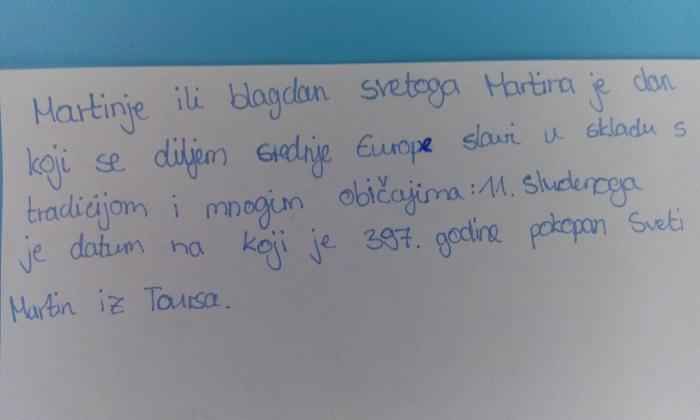 Martinje ili blagdan svetoga Martina je dan
koji se diljem srednje Europe slavi u skladu s
tradicijom i mnogim običajima: 11. studenoga
je datum na koji je 397. godine pokopan Sveti
Martin iz Toursa.